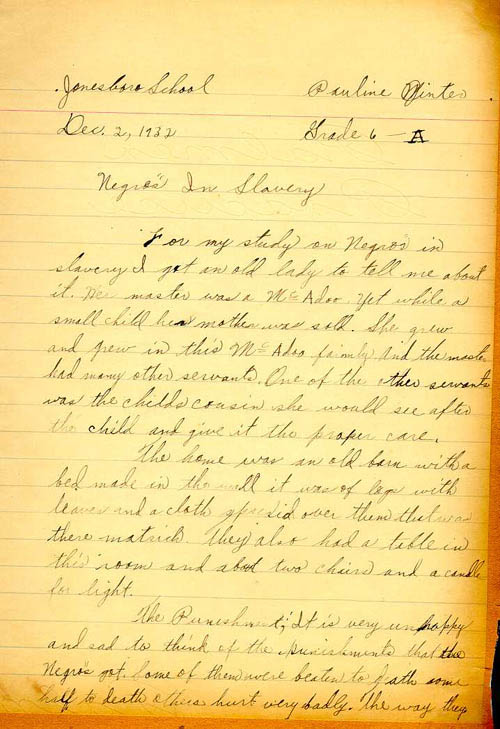 Jonesboro School Pauline Winter
Dec. 2, 1932 Grade 6 - A
Negros In Slavery
For my study on Negros in
slavery I got an old lady to tell me about
it. Her master was a McAdoo. Yet while a
small child her mother was sold. She grew
and grew in this McAdoo faimly and the master
had many other servants. One of the other servants
was the childs cousin she would see after
the child and give it the proper care.
The home was an old barn with a
bed made in the wall it was of legs with
leaves and a cloth spresid over them that was
there matrich. They also had a table in
this room and about two chairs and a candle
for light.
The Punishment; It is very unhappy
and sad to think of the punishments that the
Negros got. Some of them were beaten to death some
half to death others hurt very badly. The way they